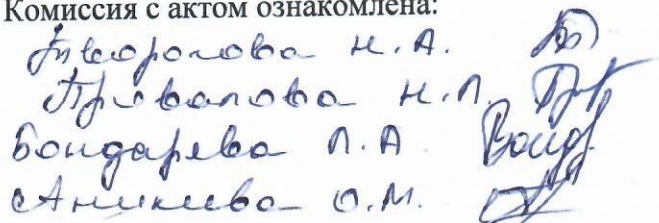 Комиссия с актом ознакомлена:
Н.А.
Привалова Н.П.
Бондарева Л.А.
Аникеева О.М.